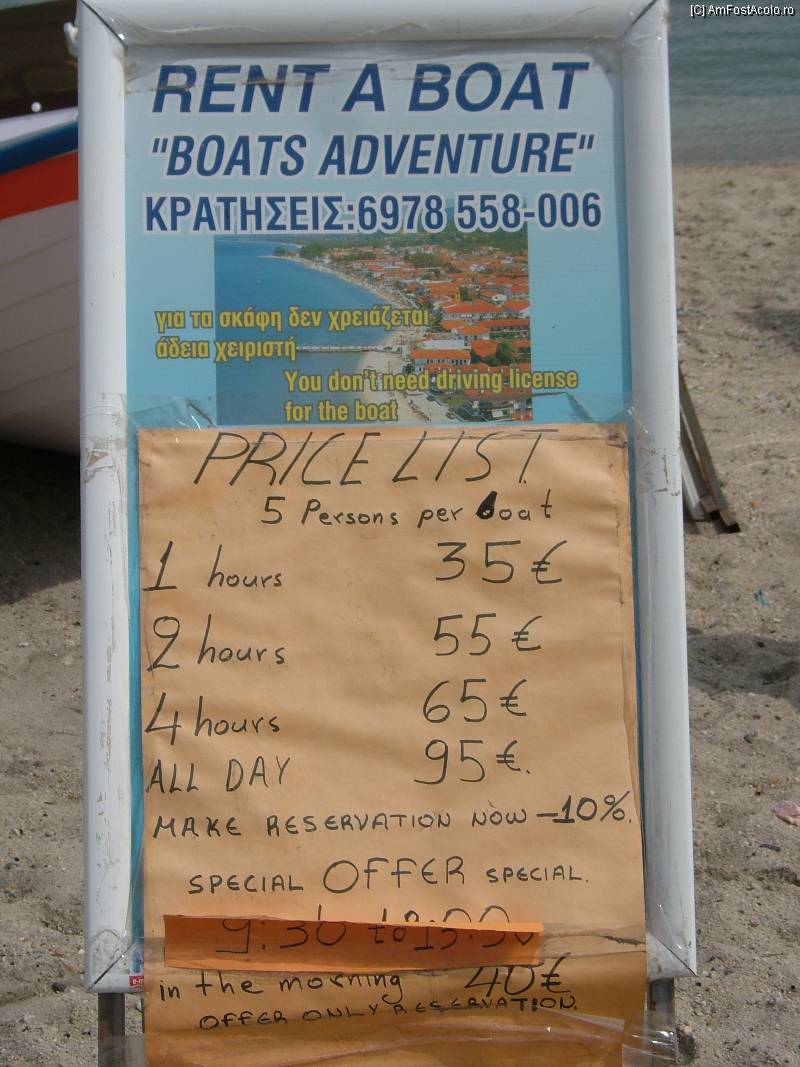 [C] AmFostAcolo.ro
RENT A BOAT
"BOATS ADVENTURE"
ΚΡΑΤΗΣΕΙΣ:6978 558-006
για τα σκάφη δεν χρειάζεται
άδεια χειριστή
You don't need driving license
for the boat
PRICE LIST
5 Persons per boat
1 hours 35€
2 hours 55€
4 hours 65€
ALL DAY 95€.
MAKE RESERVATION NOW -10%.
SPECIAL OFFER SPECIAL.
9:30 to
in the morning 40€
OFFER ONLY RESERVATION.